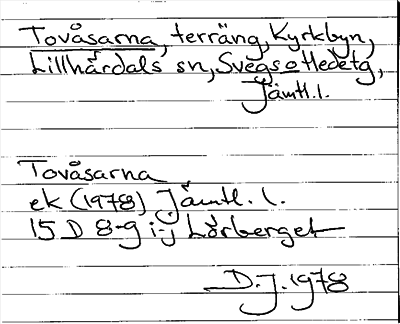 Tovåsarna, terräng, Kyrkbyn,
Lillhärdals sn, Svegs o Hedetg,
Jämtl.l.
Tovåsarna
ek (1978) Jämtl. l.
15 D 8-9 i-j Lörberget
D.J. 1978